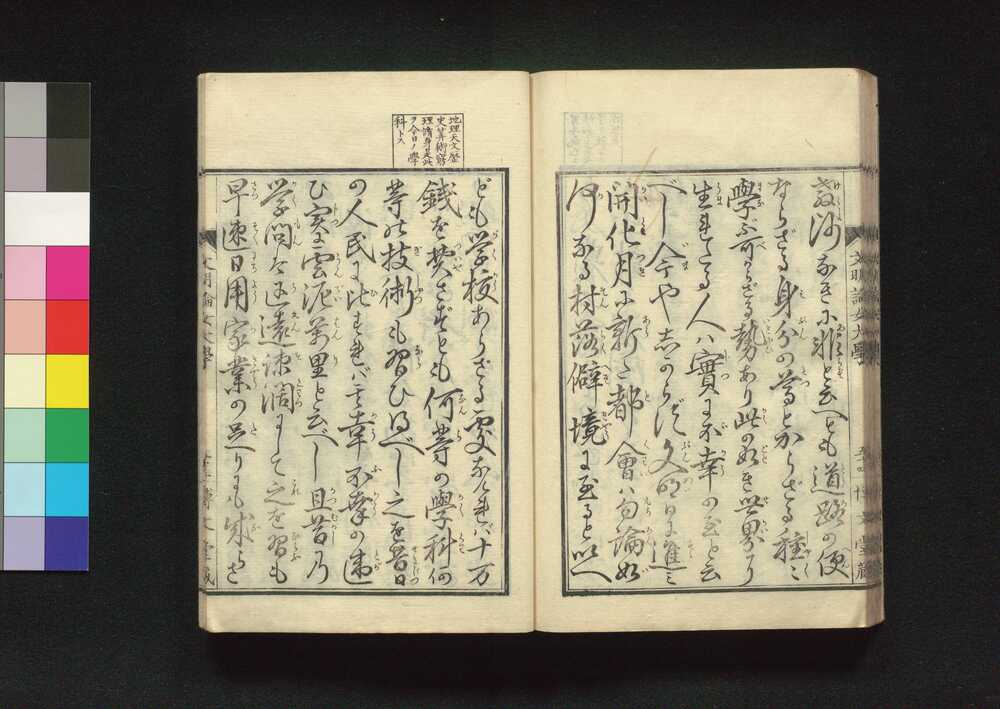 教 なきに非と云へとも道路の便
ならざる身分の尊とからざる種ミ
學ぶ可からざる勢あり此の如き世界より
生れたる人ハ實に不幸の至と云
べし今や志からず文明日に進ミ
開化月に新た都會ハ勿論如
何なる村落僻境に至ると以へ
地理天文歴
史算術窮
理脩身是此
ヲ今日ノ學
科トス
ども学校あらざる處なければ十万
銭を費さずとも何等の學科何
等の技術も習ひ得べし之を昔日
の人民に比すれバ幸不幸の違
ひ実に雲泥万里と云べし且昔の
学問は迂遠疎濶にして之を習も
早速日用家業の足りにも成らざ
文明論女大學
博文堂